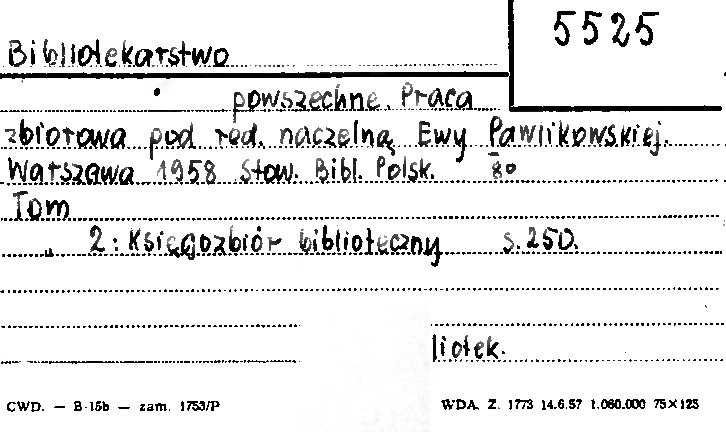 5525
Bibliotekarstwo
powszechne. Praca
zbiorowa pod red. naczelną Ewy Pawlikowskiej.
Warszawa 1958 Stow. Bibl. Polsk. 8°
Tom
„ 2: Księgozbiór biblioteczny s. 250.
liotek.
CWD. — B-15b — zam. 1753/P
WDA. Z. 1773 14.6.57 1.060.000 75×125